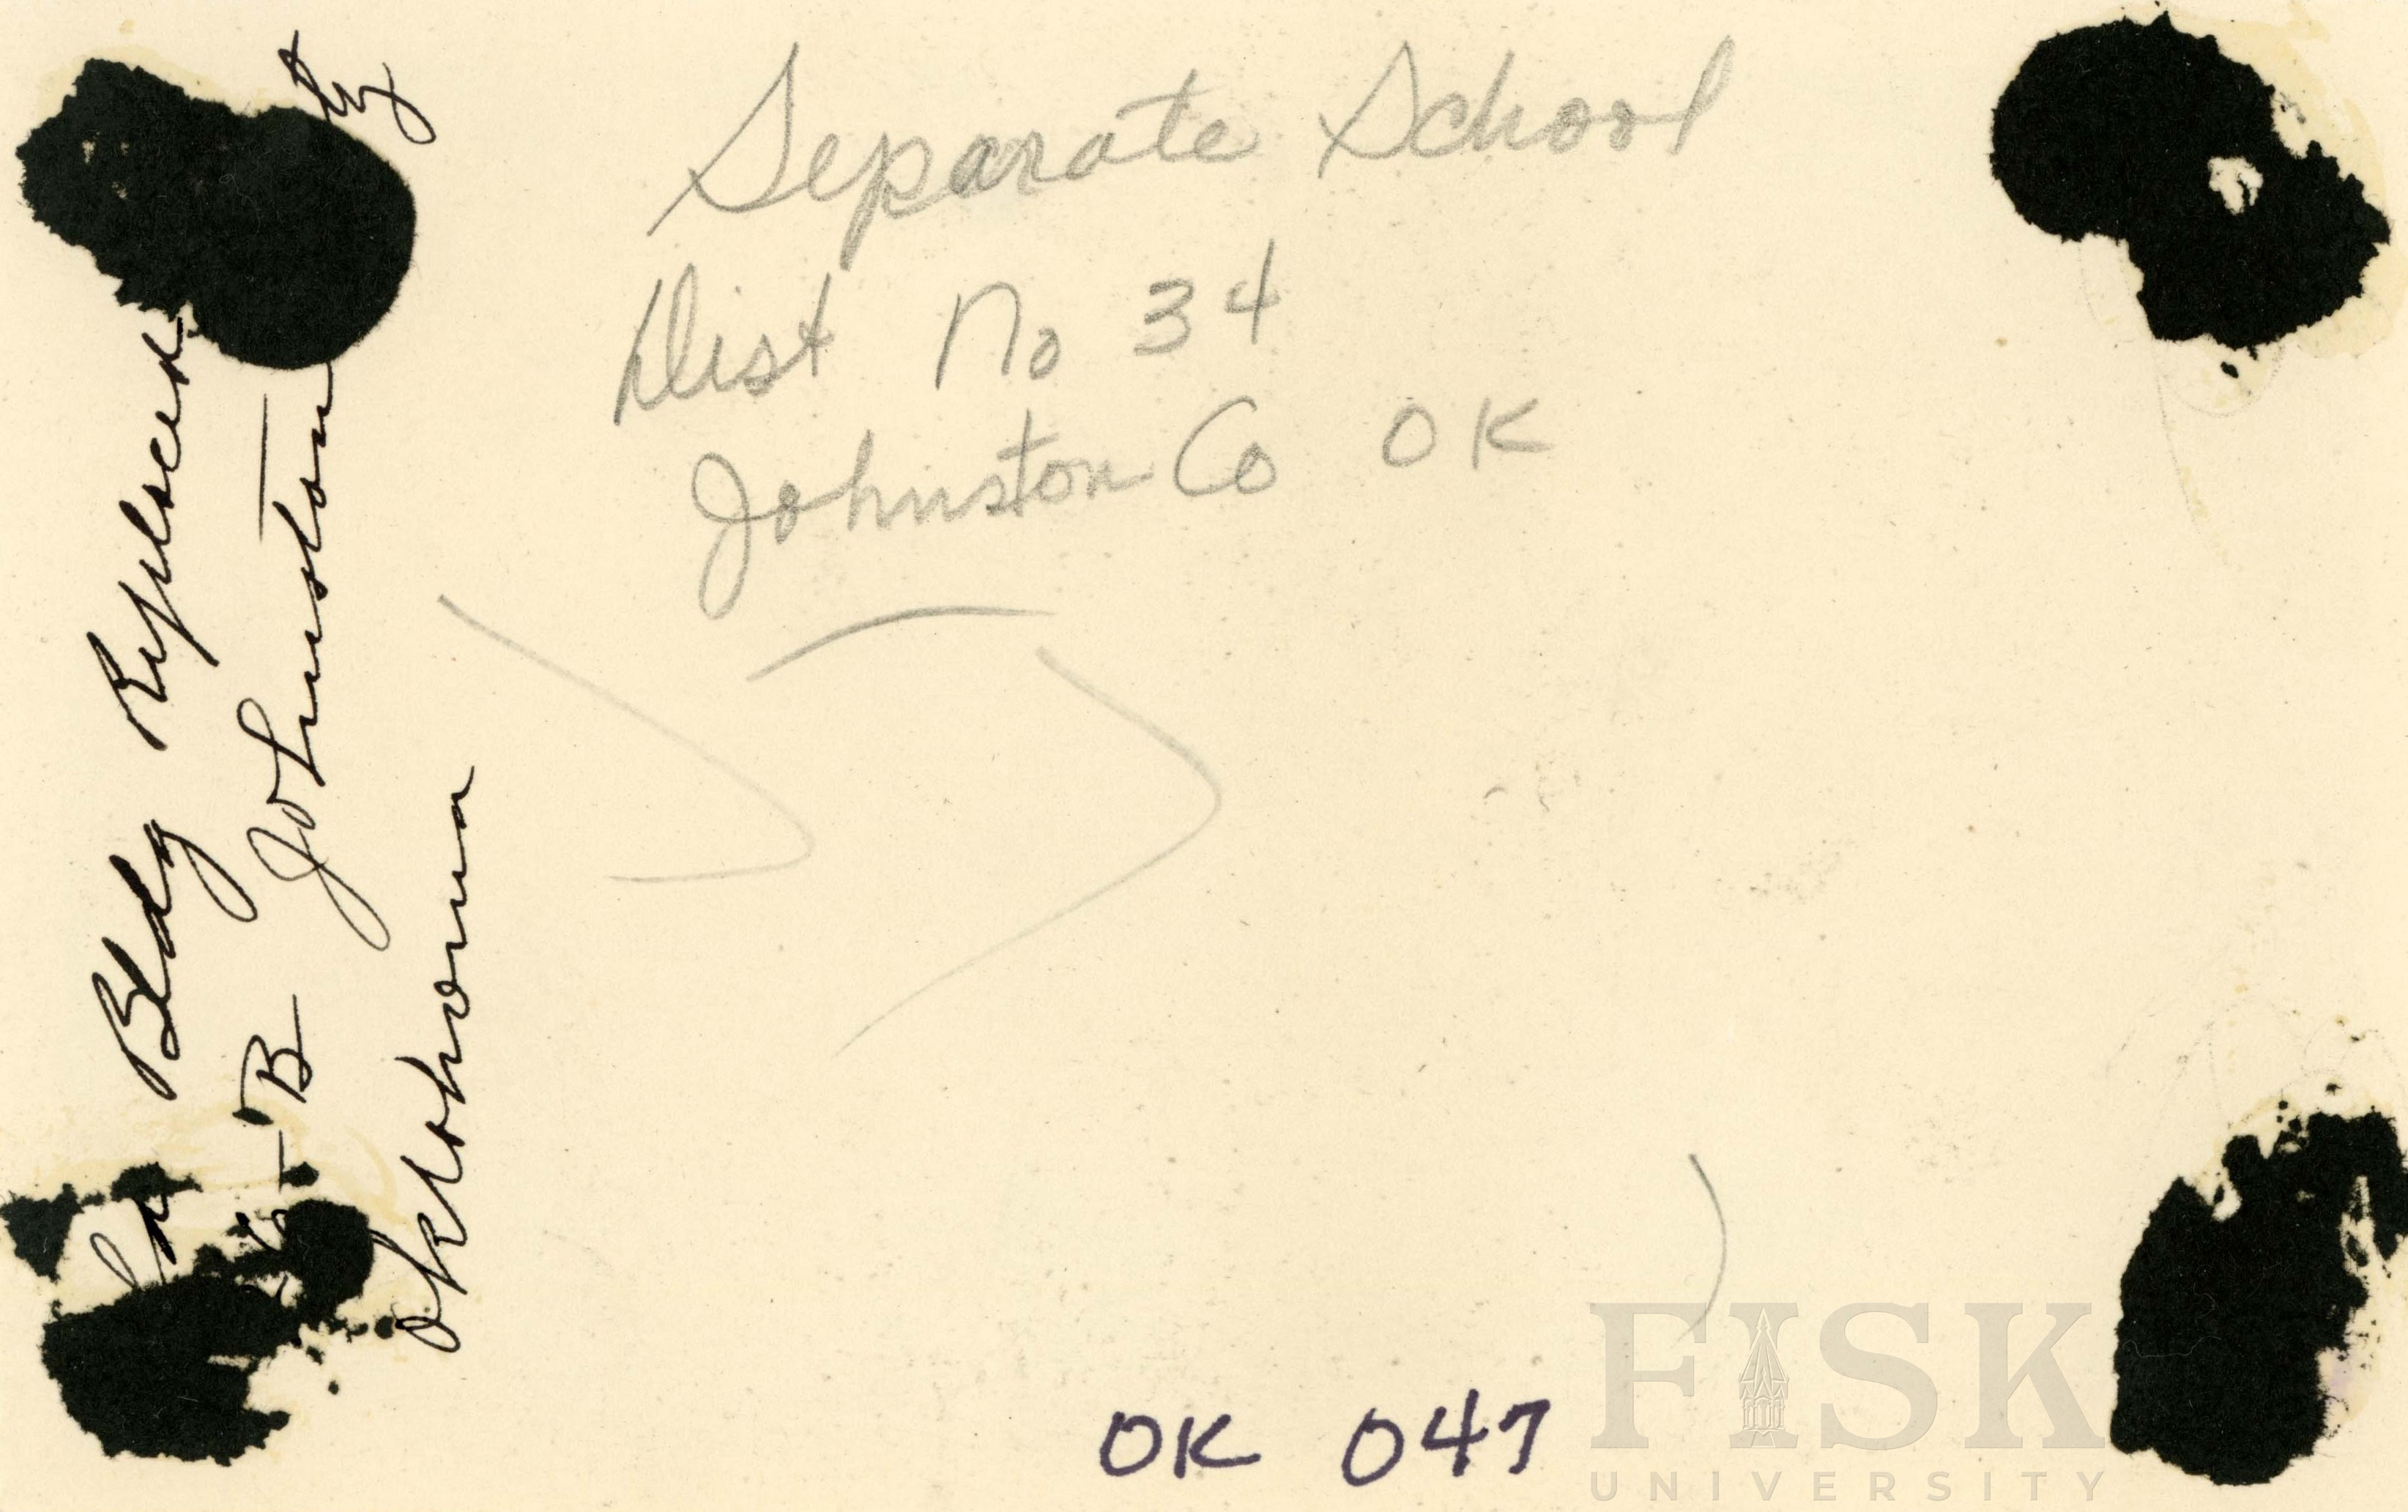 Separate School
Dist No 34
Johnston Co OK
Bldg Replaced
B Johnston ty
Oklahoma
OK 047
FISK
UNIVERSITY